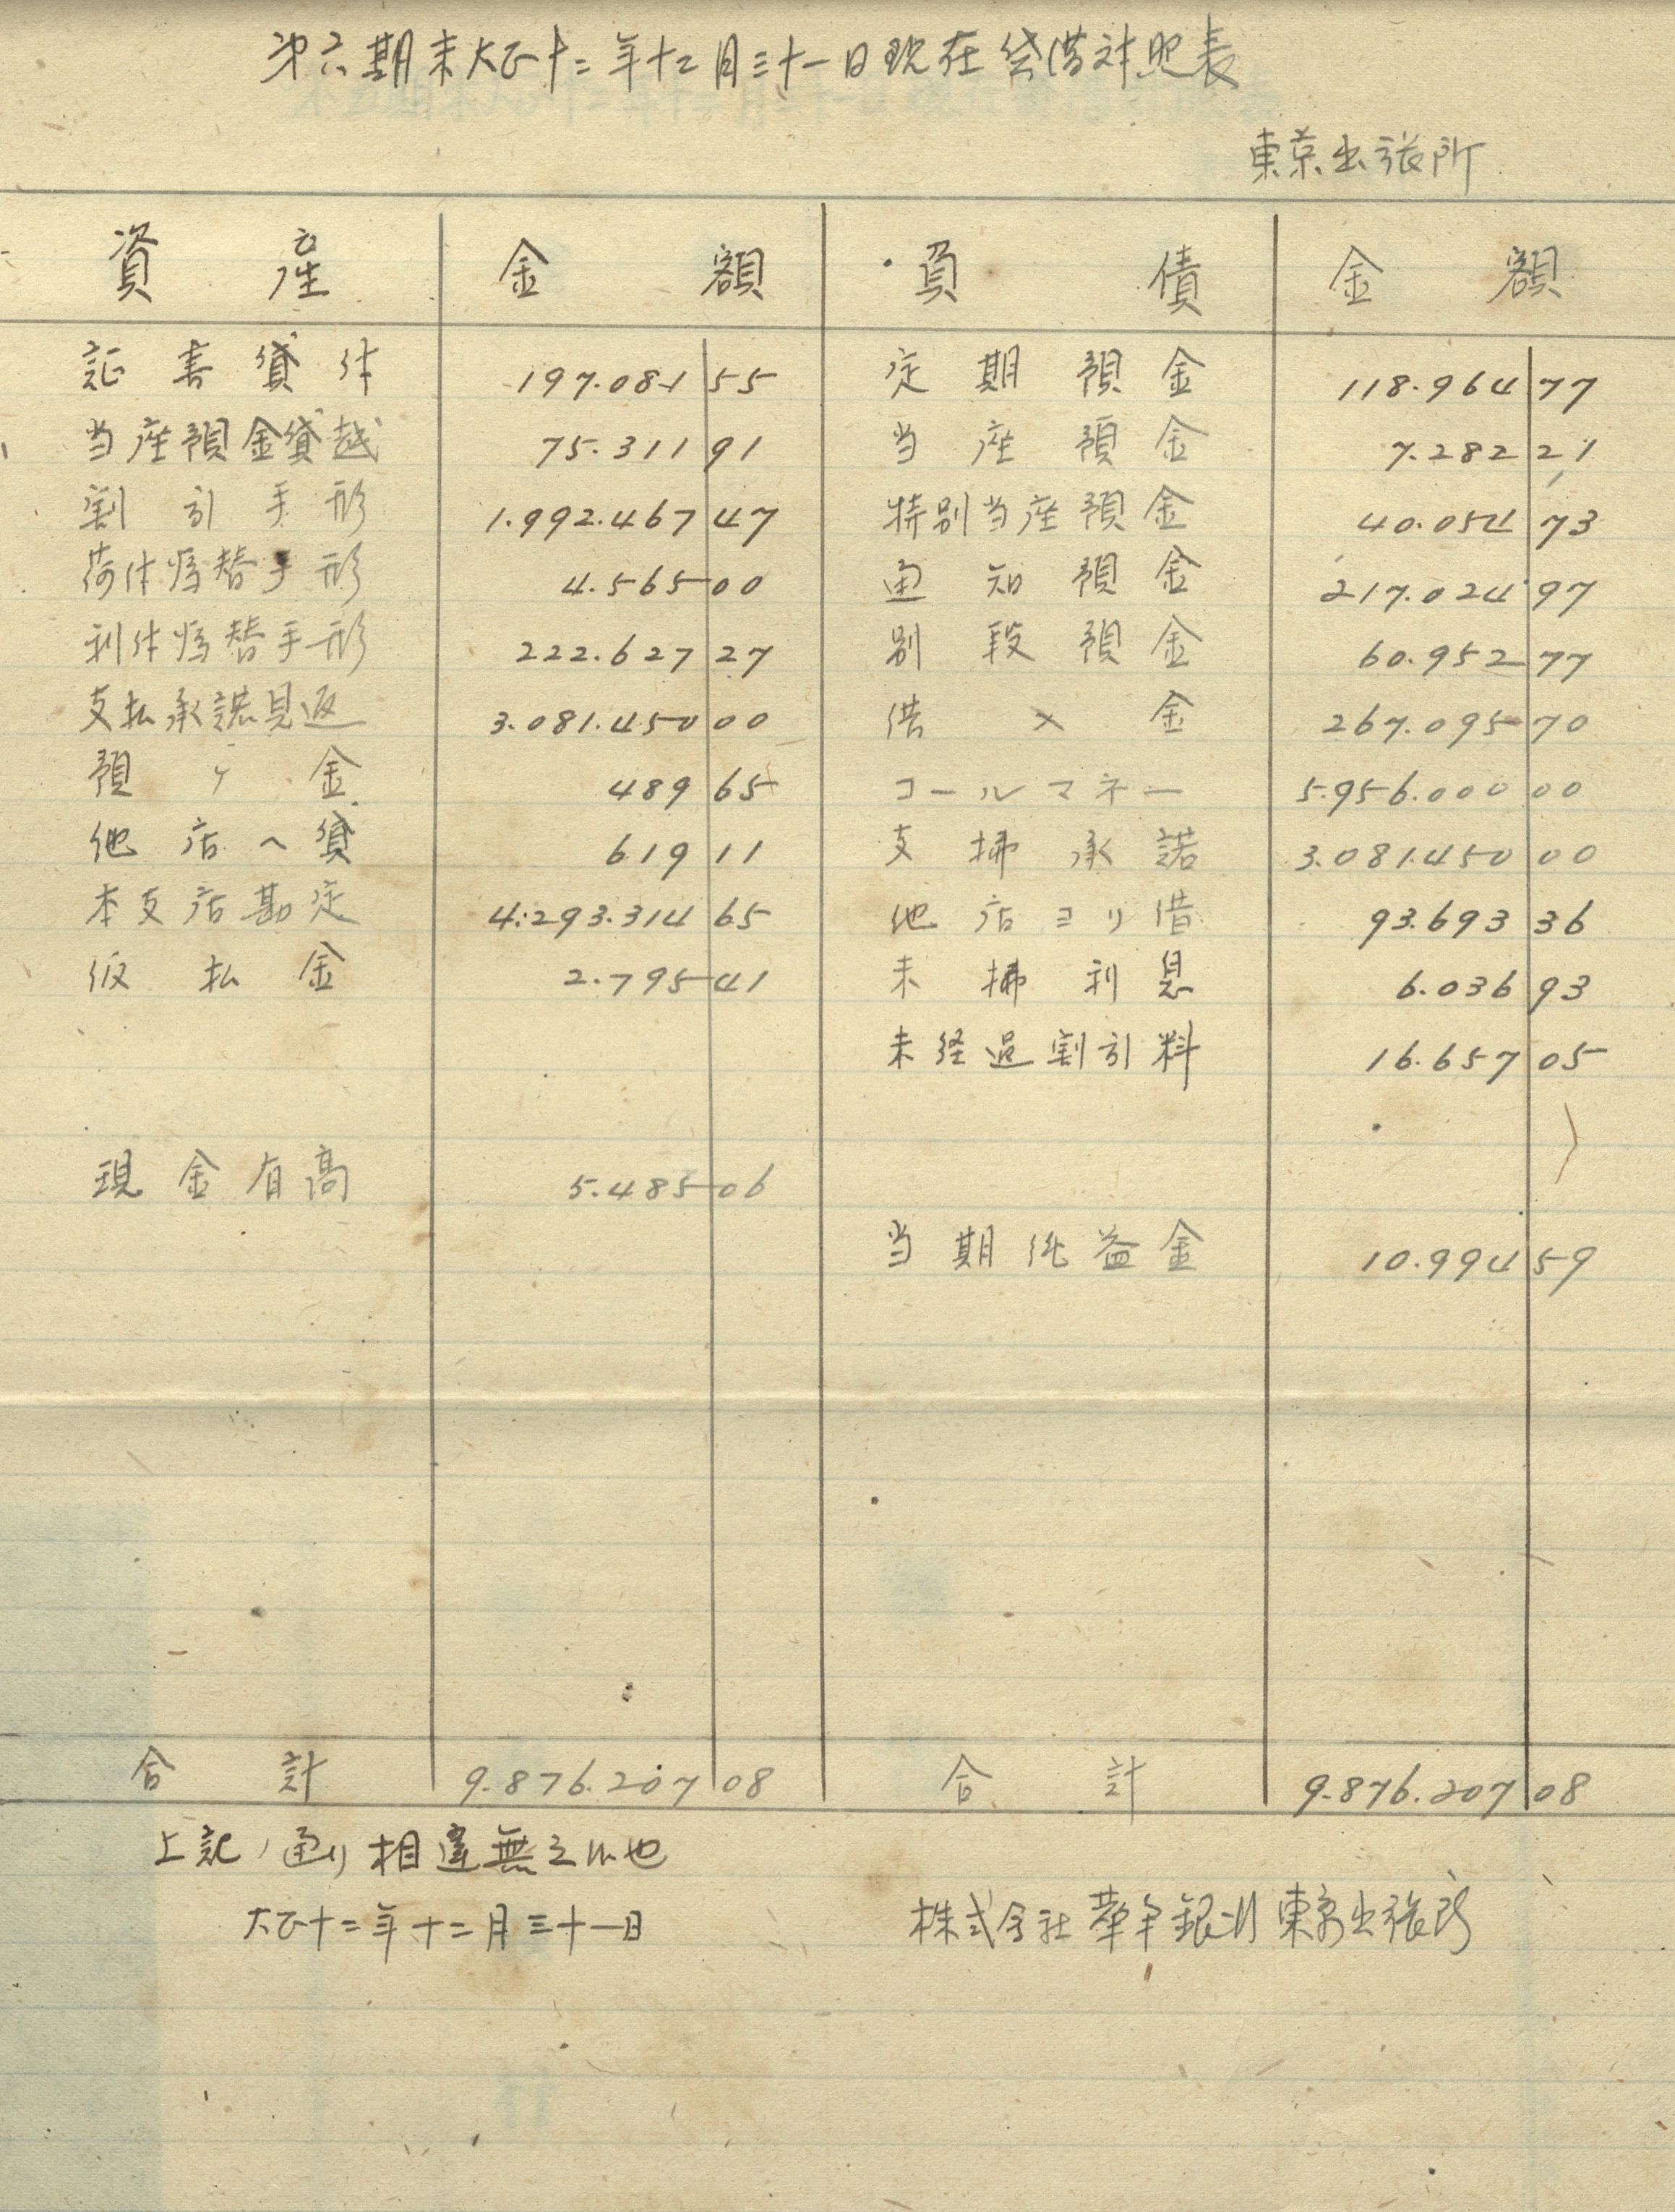 第六期末大正十二年十二月三十一日現在貸借対照表
東京出張所
資産 金額 負債 金額
証書貸付 197.081 55 定期預金 118.964 77
当座預金貸越 75.311 91 当座預金 7.282 21
割引手形 1.992.467 47 特別当座預金 40.054 73
荷付為替手形 4.565 00 通知預金 217.024 97
利付為替手形 222.627 27 別段預金 60.952 77
支払承諾見返 3.081.450 00 借入金 267.095 70
預ケ金 489 65 コールマネー 5.956.000 00
他店へ貸 619 11 支拂承諾 3.081.450 00
本支店勘定 4.293.314 65 他店ヨリ借 93.693 36
仮払金 2.795 41 未拂利息 6.036 93
未経過割引料 16.657 05
現金有高 5.485 06
当期純益金 10.994 59
合計 9.876.207 08 合計 9.876.207 08
上記ノ通リ相違無之候也
大正十二年十二月三十一日
株式会社華南銀行東京出張所